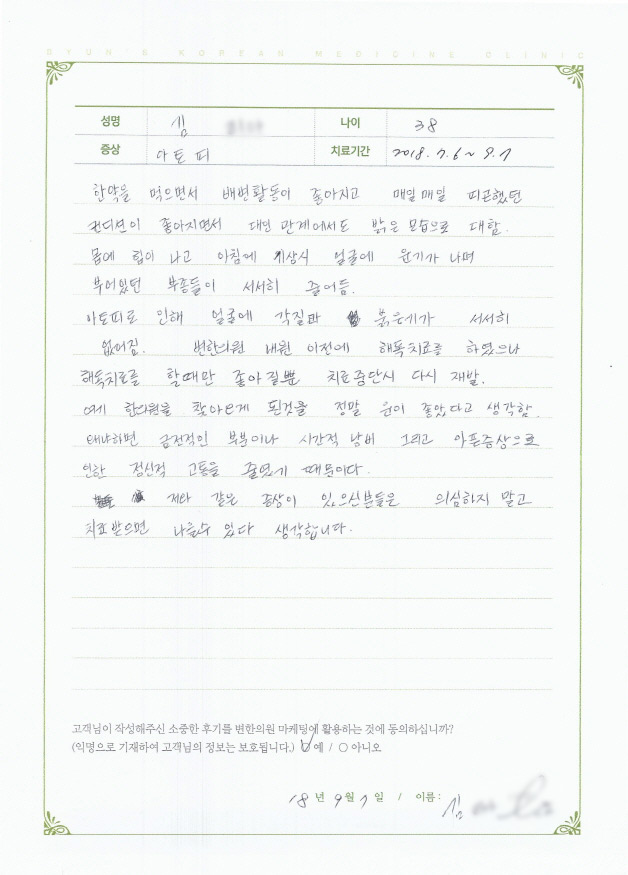 BYUN'S KOREAN MEDICINE CLINIC
성명 심 나이 38
증상 아토피 치료기간 2018. 7. 6 ~ 9. 7
한약을 먹으면서 배변활동이 좋아지고 매일매일 피곤했던
컨디션이 좋아지면서 대인 관계에서도 밝은 모습으로 대함.
몸에 힘이 나고 아침에 기상시 얼굴에 윤기가 나며
부어있던 부종들이 서서히 줄어듬.
아토피로 인해 얼굴에 각질과 붉은기가 서서히
없어짐. 변한의원 내원 이전에 해독치료를 하였으나
해독치료를 할때만 좋아질뿐 치료중단시 다시 재발.
여기 한의원을 찾아오게 된것을 정말 운이 좋았다고 생각함.
왜냐하면 금전적인 부분이나 시간적 낭비 그리고 아픈증상으로
인한 정신적 고통을 줄였기 때문이다.
저와 같은 증상이 있으신분들은 의심하지 말고
치료받으면 나을수 있다 생각합니다.
고객님이 작성해주신 소중한 후기를 변한의원 마케팅에 활용하는 것에 동의하십니까?
(익명으로 기재하여 고객님의 정보는 보호됩니다.) 예 / 아니오
18년 9월 7일 / 이름: 심